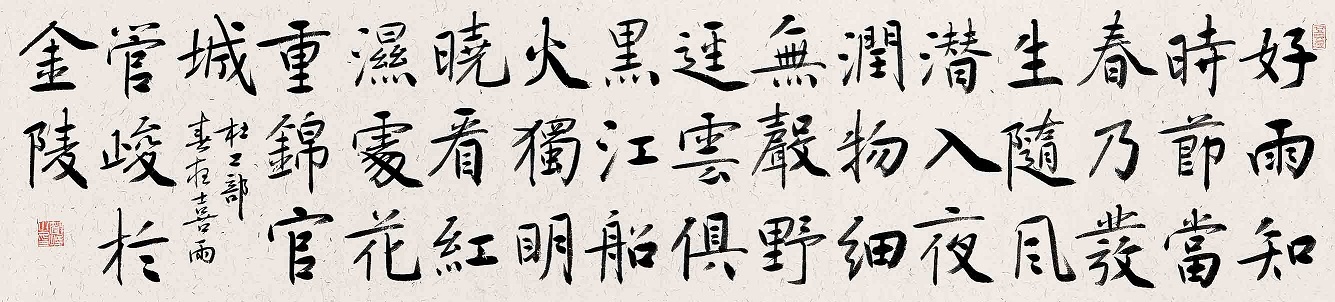 好雨知
時節當
春乃發
生隨風
潛入夜
潤物細
無聲野
逕雲俱
黑江船
火獨明
曉看紅
濕處花
重錦官
城
杜工部
春夜喜雨
管峻於
金陵